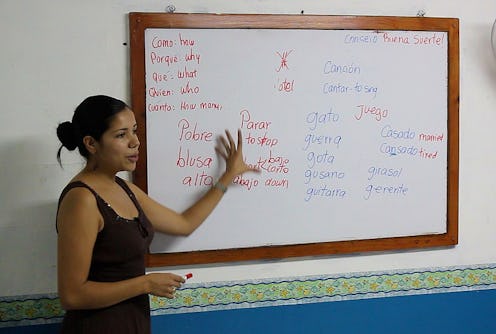 Como: how
Porqué: why
que: what
Quien: who
cuánto: How many
otol
Consejo Buena Suerte!
Canción
Cantar-to sing
Pobre
blusa
alto
Parar
to stop
bajo
corto
abajo down
gato Juego
guerra
gota
gusano
guitarra
Casado married
Cansado tired
girasol
gerente